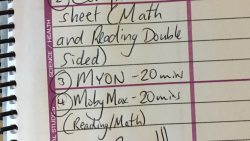 sheet (Math
and Reading Double
Sided)
③ MYON - 20 mins
④ Moby Max - 20 mins
(Reading/Math)
SCIENCE / HEALTH